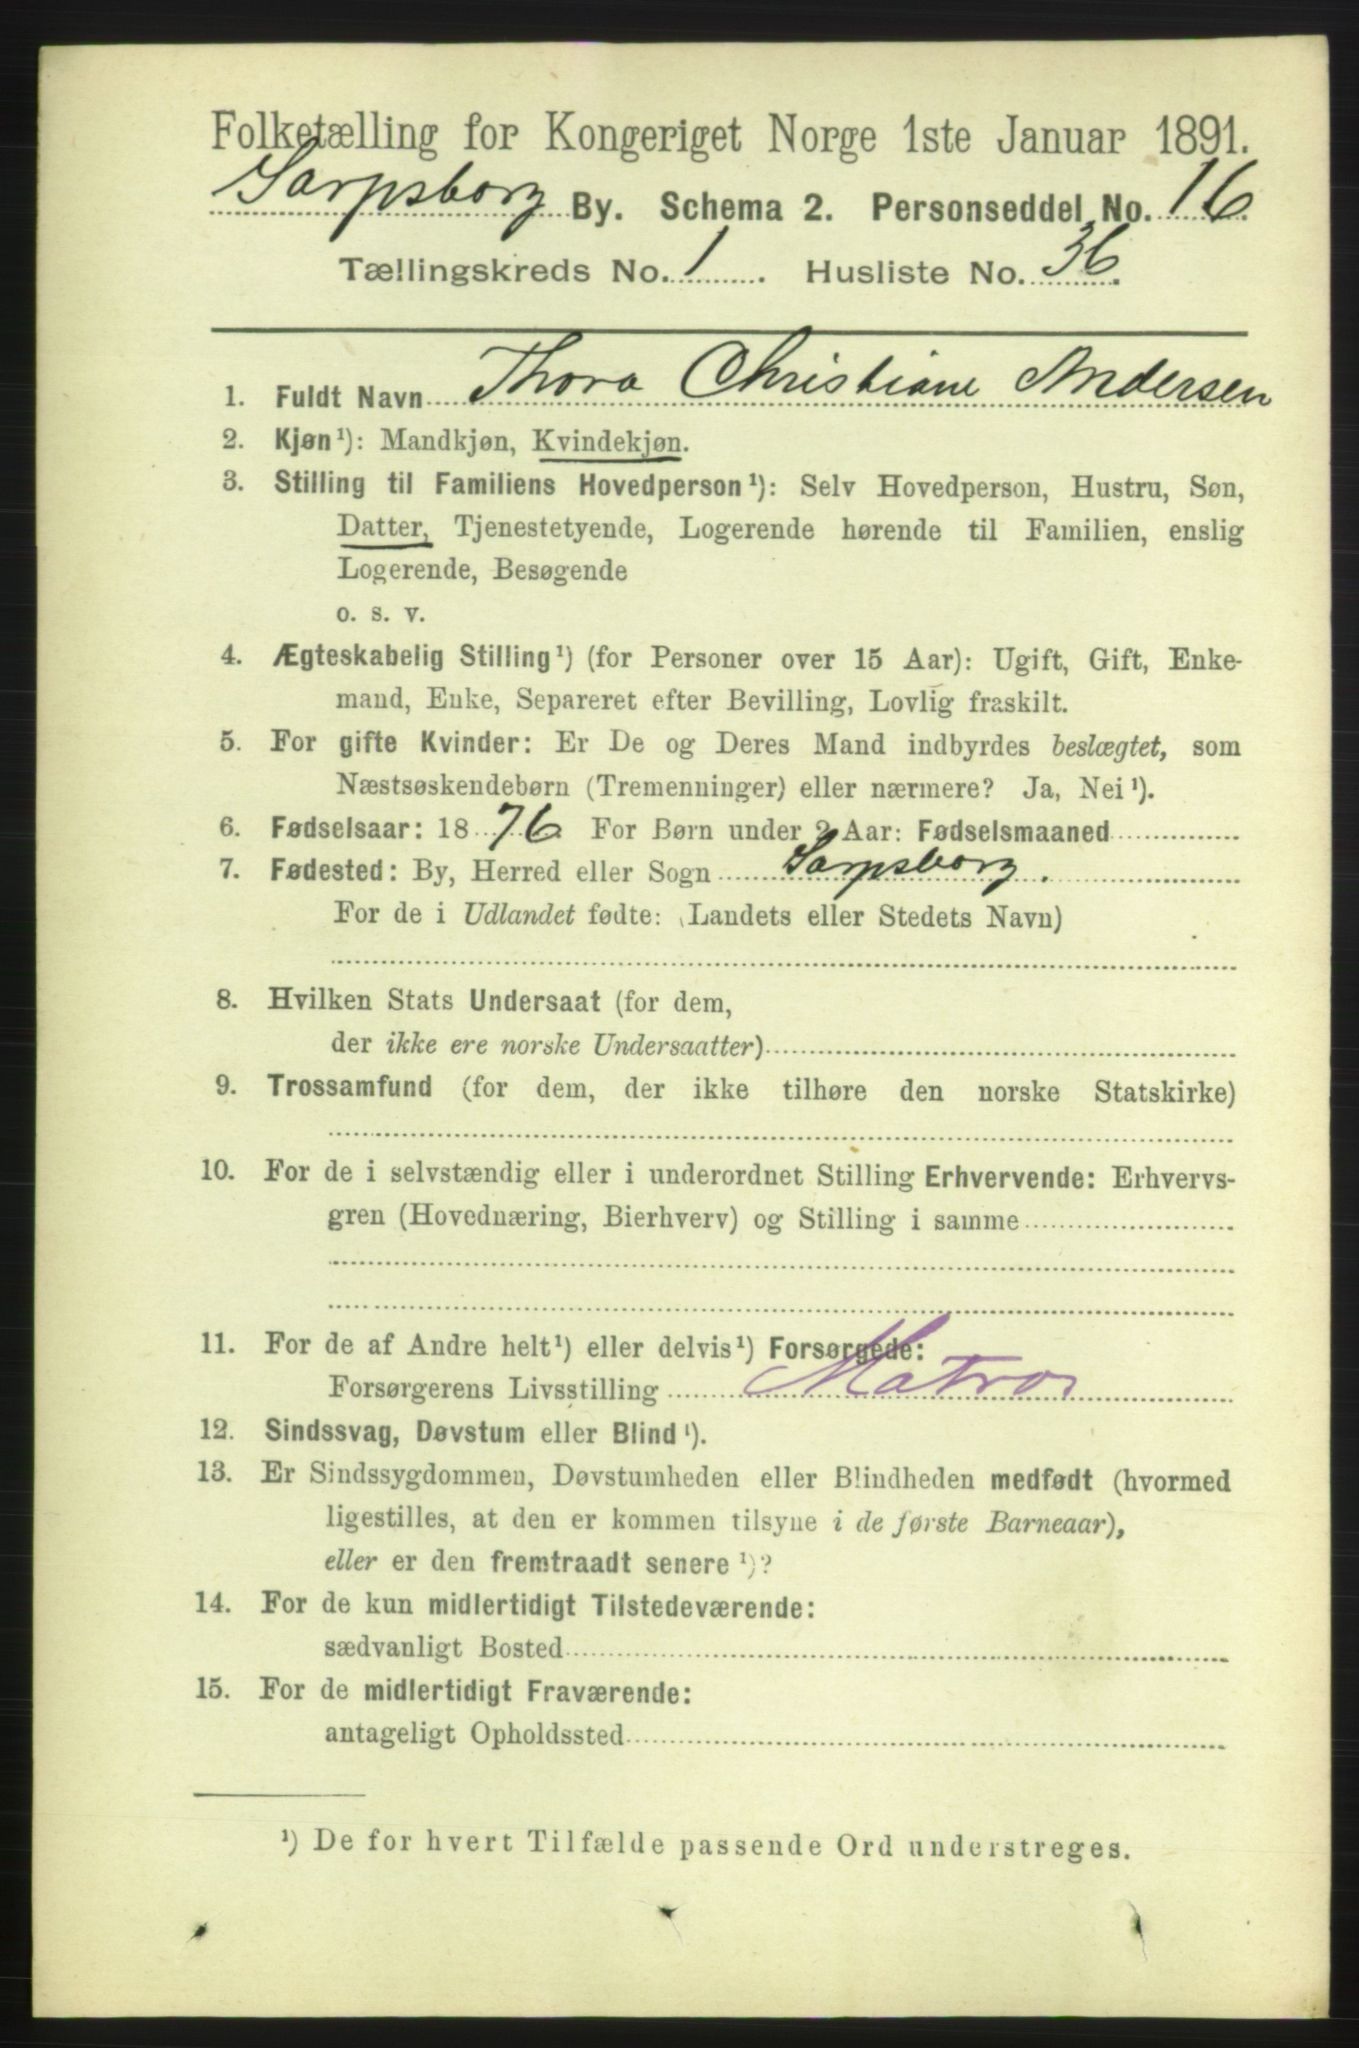 Folketælling for Kongeriget Norge 1ste Januar 1891.
Sarpsborg By. Schema 2. Personseddel No. 16
Tællingskreds No. 1. Husliste No. 36.
1. Fuldt Navn Thora Christiane Andersen
2. Kjøn¹): Mandkjøn, Kvindekjøn.
3. Stilling til Familiens Hovedperson¹): Selv Hovedperson, Hustru, Søn,
Datter, Tjenestetyende, Logerende hørende til Familien, enslig
Logerende, Besøgende
o. s. v.
4. Ægteskabelig Stilling¹) (for Personer over 15 Aar): Ugift, Gift, Enke-
mand, Enke, Separeret efter Bevilling, Lovlig fraskilt.
5. For gifte Kvinder: Er De og Deres Mand indbyrdes beslægtet, som
Næstsøskendebørn (Tremenninger) eller nærmere? Ja, Nei¹).
6. Fødselsaar: 1876 For Børn under 2 Aar: Fødselsmaaned
7. Fødested: By, Herred eller Sogn Sarpsborg.
For de i Udlandet fødte: (Landets eller Stedets Navn)
8. Hvilken Stats Undersaat (for dem,
der ikke ere norske Undersaatter)
9. Trossamfund (for dem, der ikke tilhøre den norske Statskirke)
10. For de i selvstændig eller i underordnet Stilling Erhvervende: Erhvervs-
gren (Hovednæring, Bierhverv) og Stilling i samme
11. For de af Andre helt¹) eller delvis¹) Forsørgede:
Forsørgerens Livsstilling Matros
12. Sindssvag, Døvstum eller Blind¹).
13. Er Sindssygdommen, Døvstumheden eller Blindheden medfødt (hvormed
ligestilles, at den er kommen tilsyne i de første Barneaar),
eller er den fremtraadt senere¹)?
14. For de kun midlertidigt Tilstedeværende:
sædvanligt Bosted
15. For de midlertidigt Fraværende:
antageligt Opholdssted
¹) De for hvert Tilfælde passende Ord understreges.